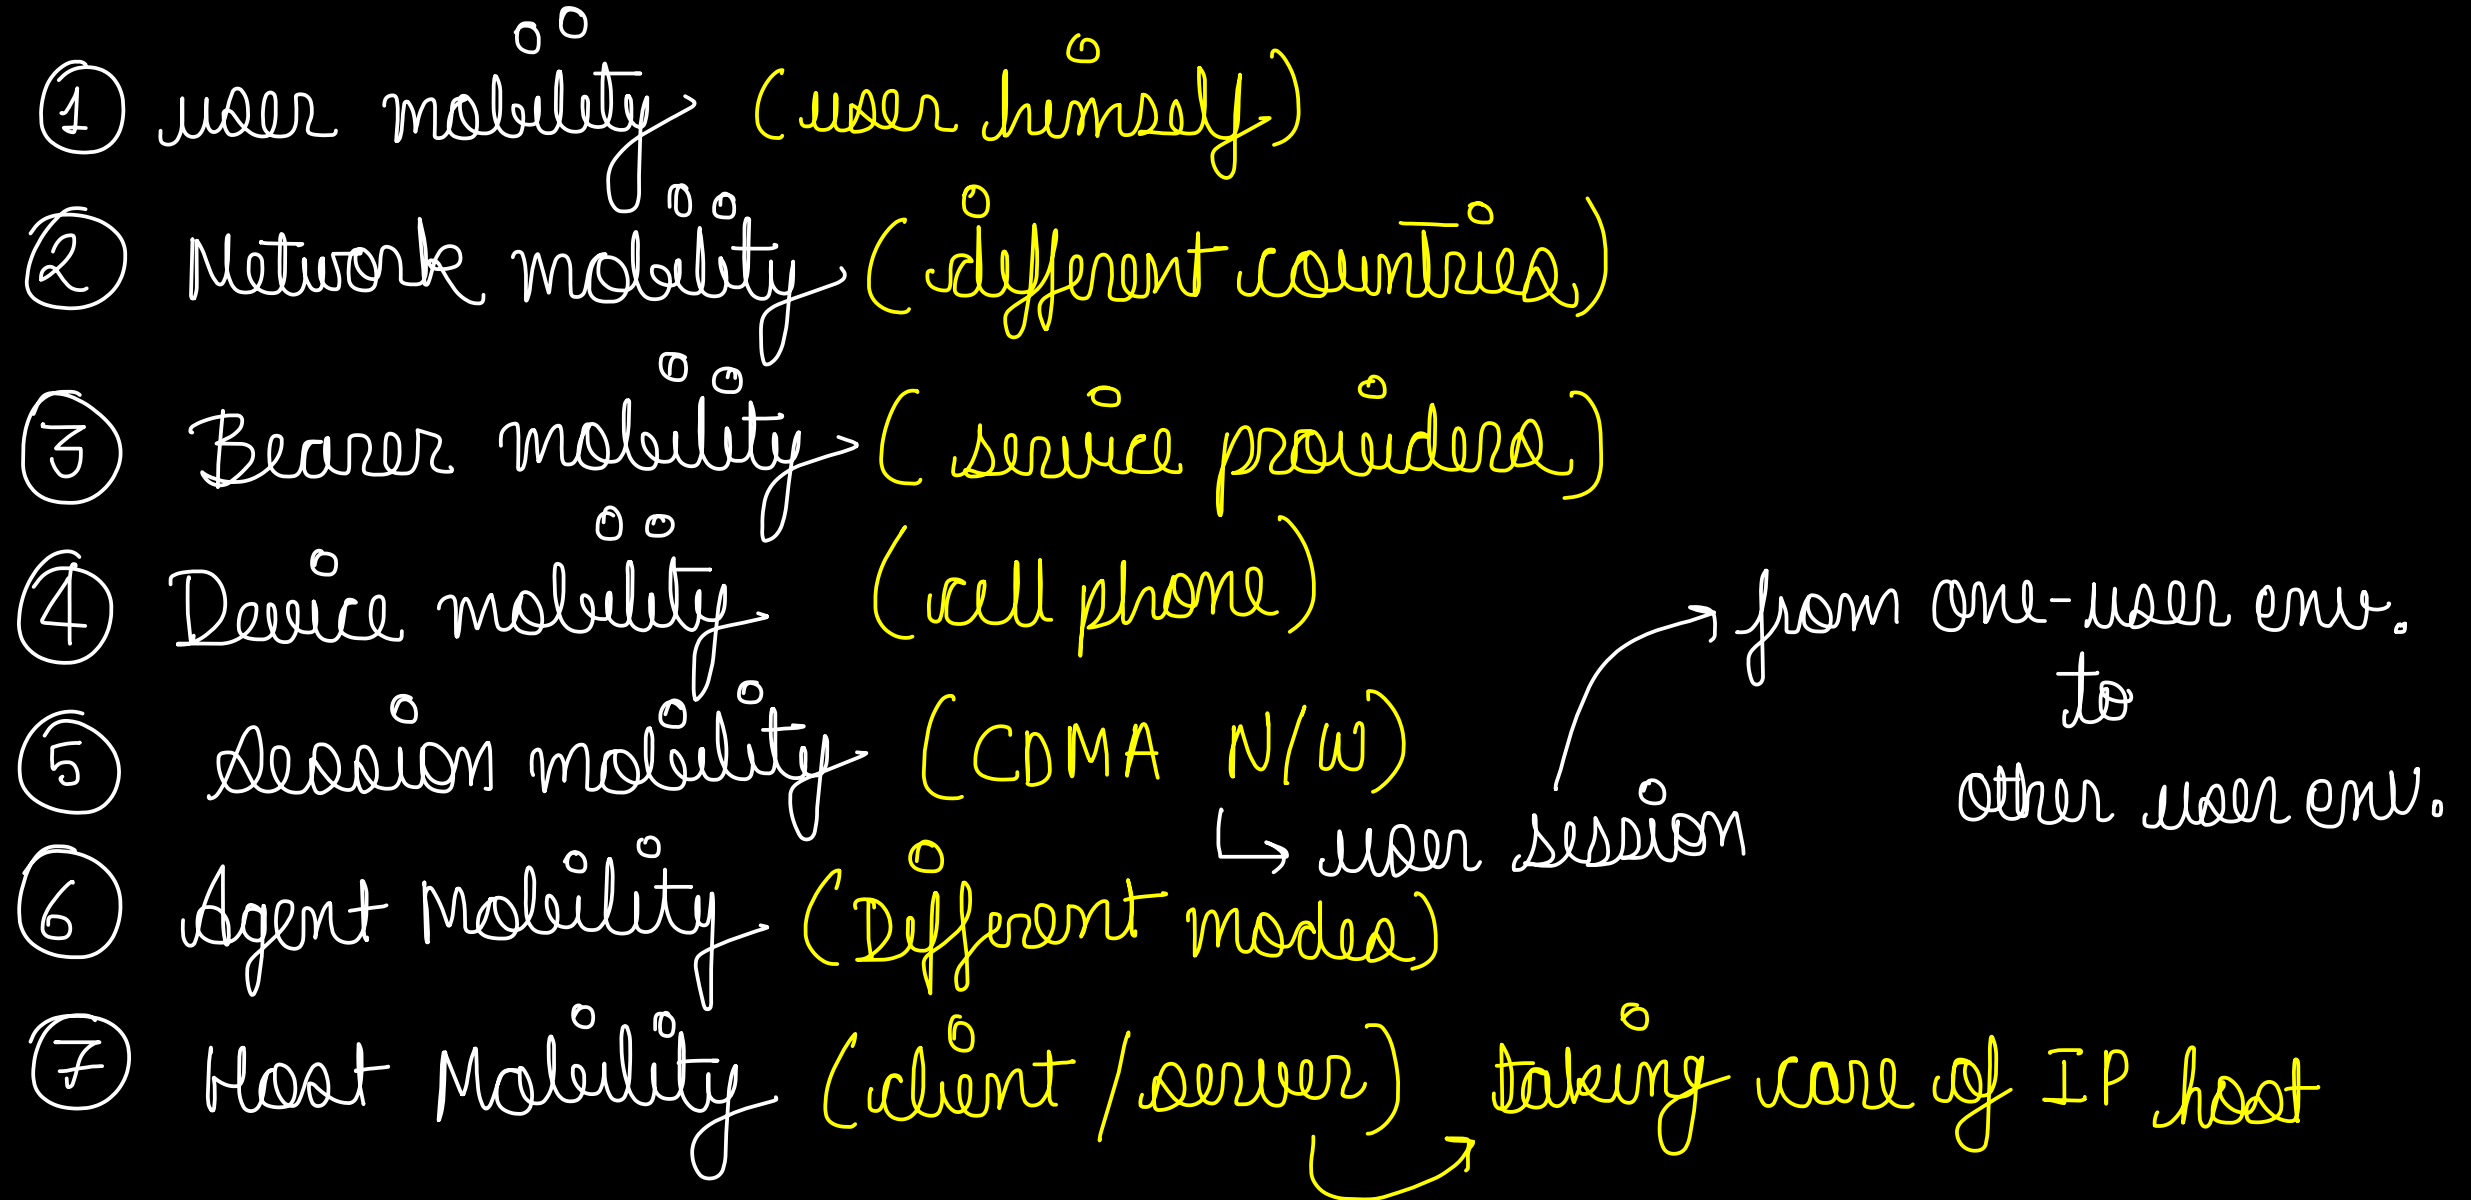 1 user mobility (user himself)
2 Network mobility (different countries)
3 Bearer mobility (service providers)
4 Device mobility (cell phone)
5 Session mobility (CDMA N/W)
↳ user session
→ from one-user env.
to
other user env.
6 Agent Mobility (Different modes)
7 Host Mobility (client/server) → taking care of IP host